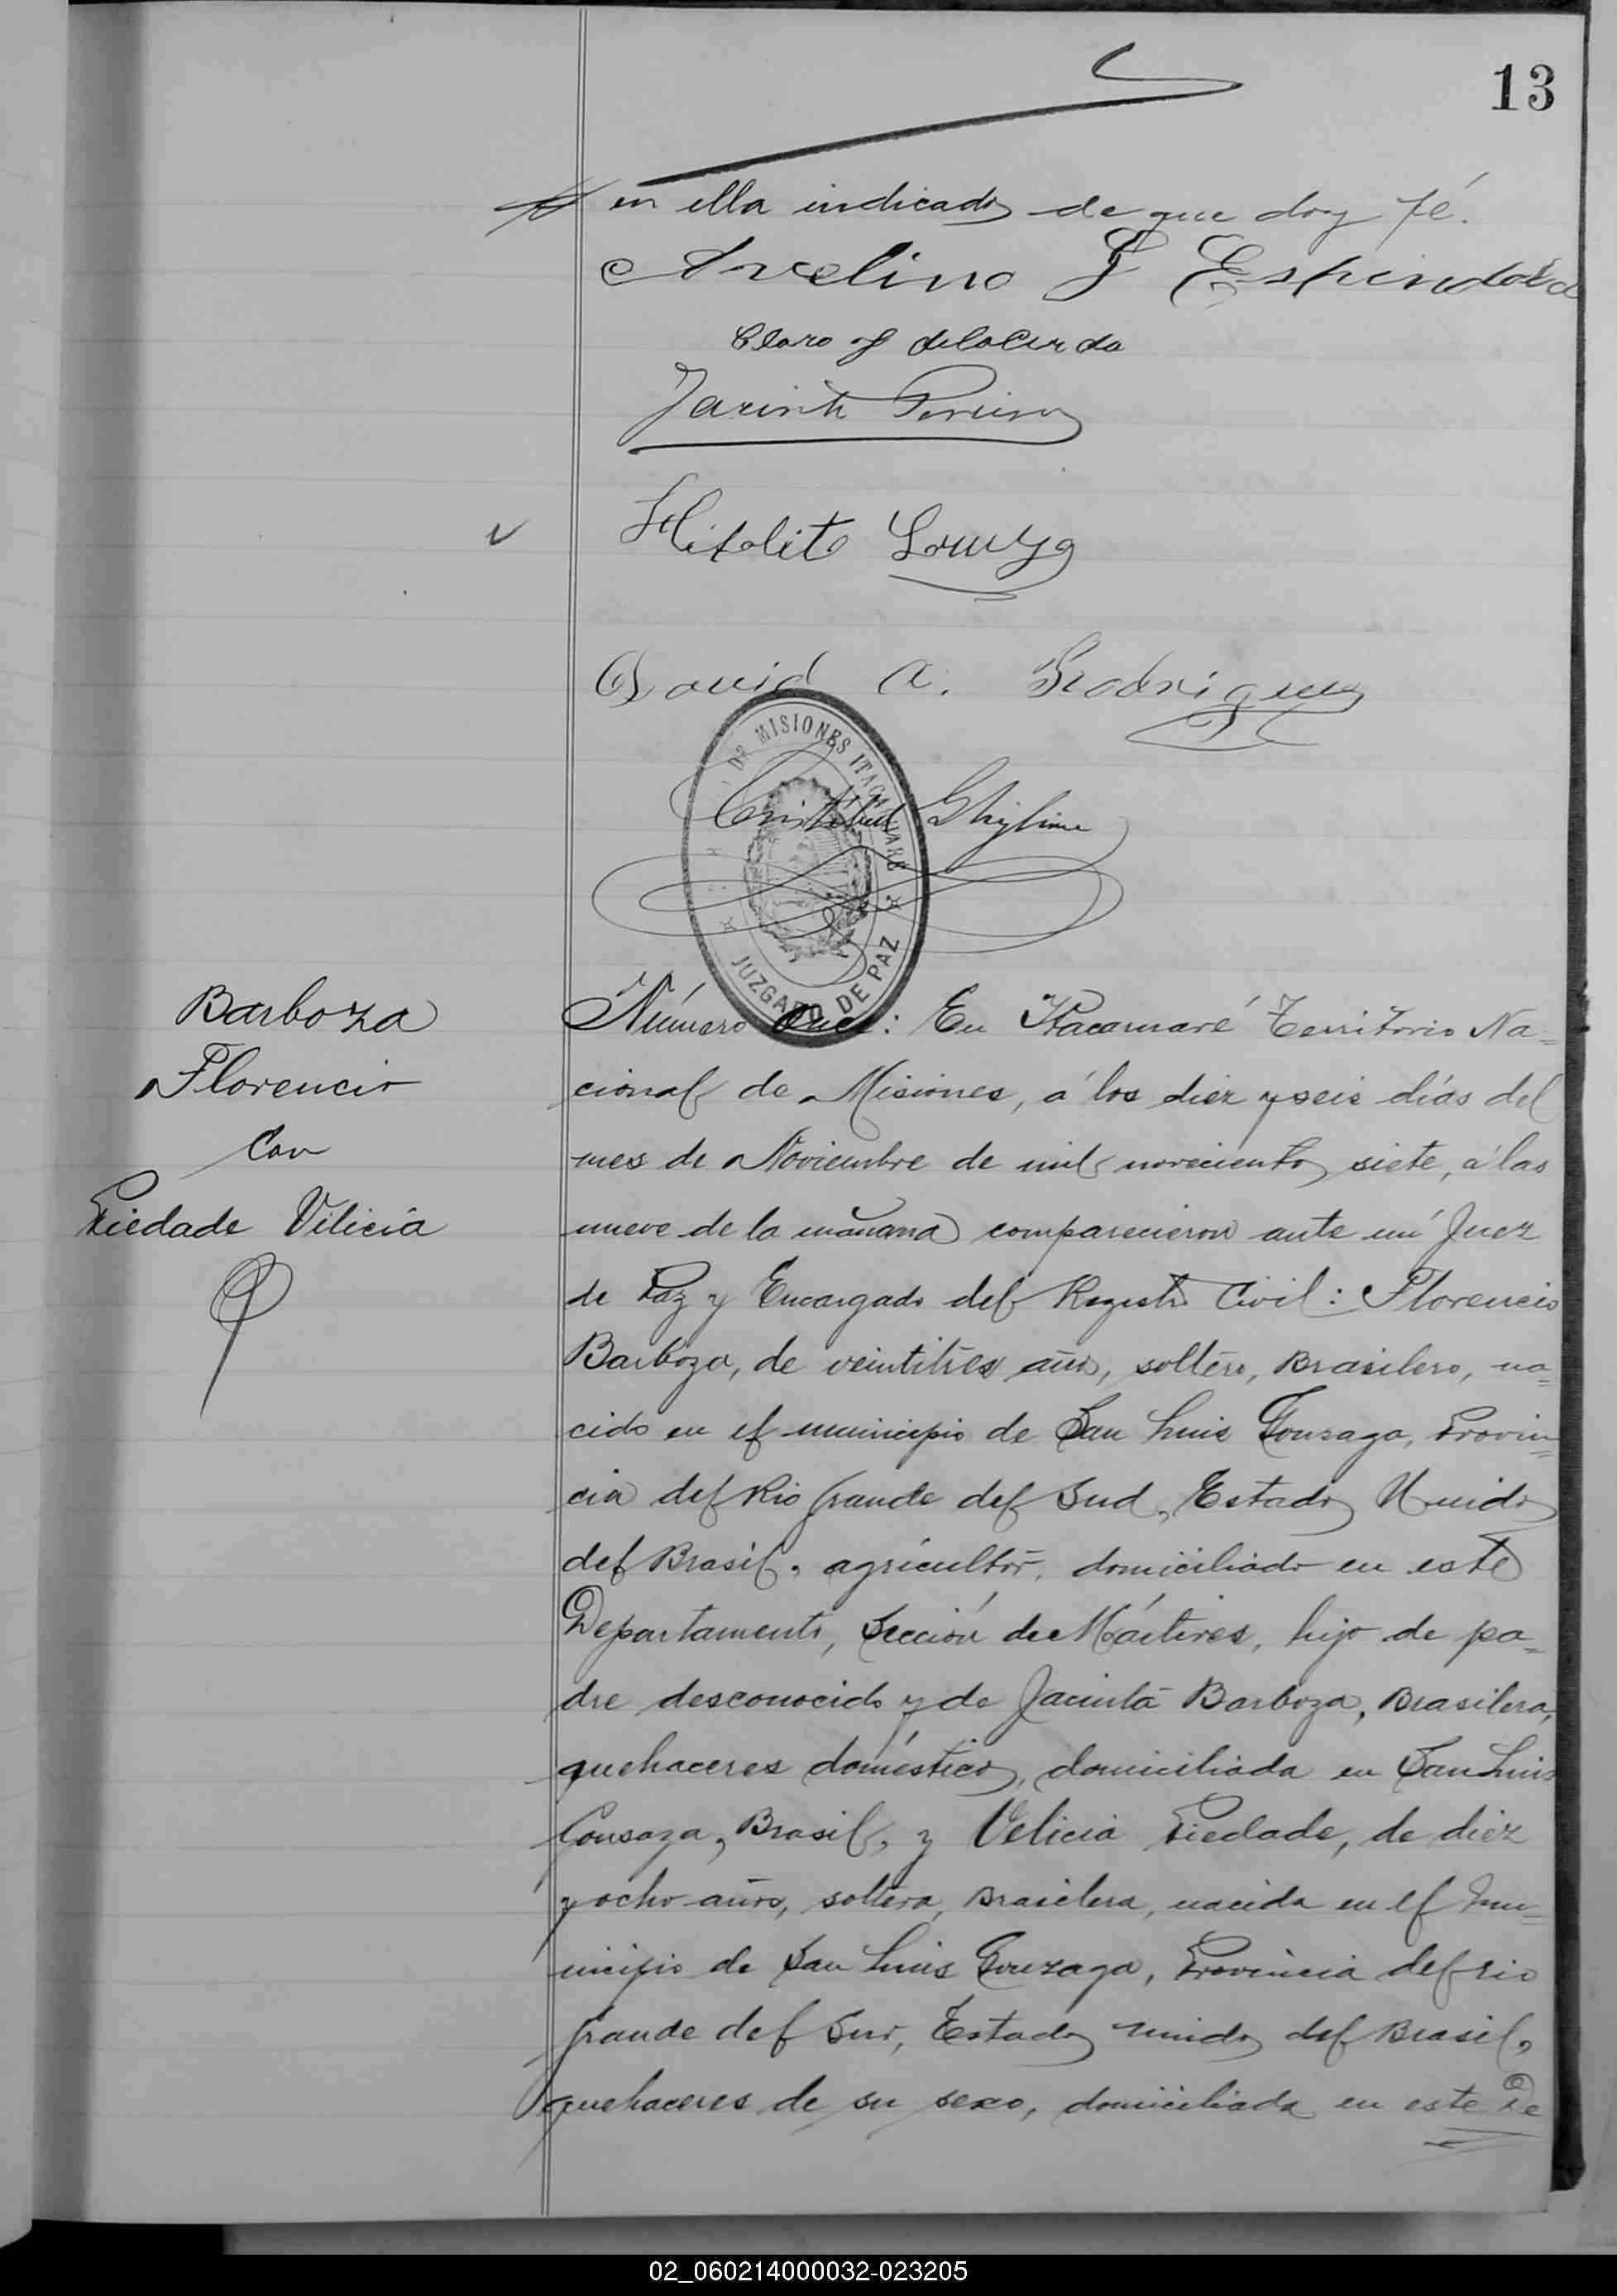 13
en ella indicados de que doy fé.
Avelino F Espindola
Claro J delaCerda
Jacinto Pereira
Hipolito
David A. Rodriguez
DE MISIONES ITACARUARE
JUZGADO DE PAZ
Cristobal
Barboza
Florencio
Con
Piedade Vilicia
Número once: En Itacaruaré Territorio Na=
cional de Misiones, á los diez y seis días del
mes de Noviembre de mil novecientos siete, á las
nueve de la mañana comparecieron ante mi Juez
de Paz y Encargado del Registro Civil: Florencio
Barboza, de veintitres años, soltero, Brasilero, na=
cido en el municipio de San Luis Gonzaga, Provin=
cia del Rio Grande del Sud, Estados Unidos
del Brasil, agricultor, domiciliado en este
Departamento, Sección de Mártires, hijo de pa=
dre desconocido y de Jacinta Barboza, Brasilera,
quehaceres domésticos, domiciliada en San Luis
Gonzaga, Brasil, y Velicia Piedade, de diez
y ocho años, soltera, Brasilera, nacida en el Mu=
nicipio de San Luis Gonzaga, Provincia del rio
grande del Sur, Estados unidos del Brasil,
quehaceres de su sexo, domiciliada en este De
02_060214000032-023205